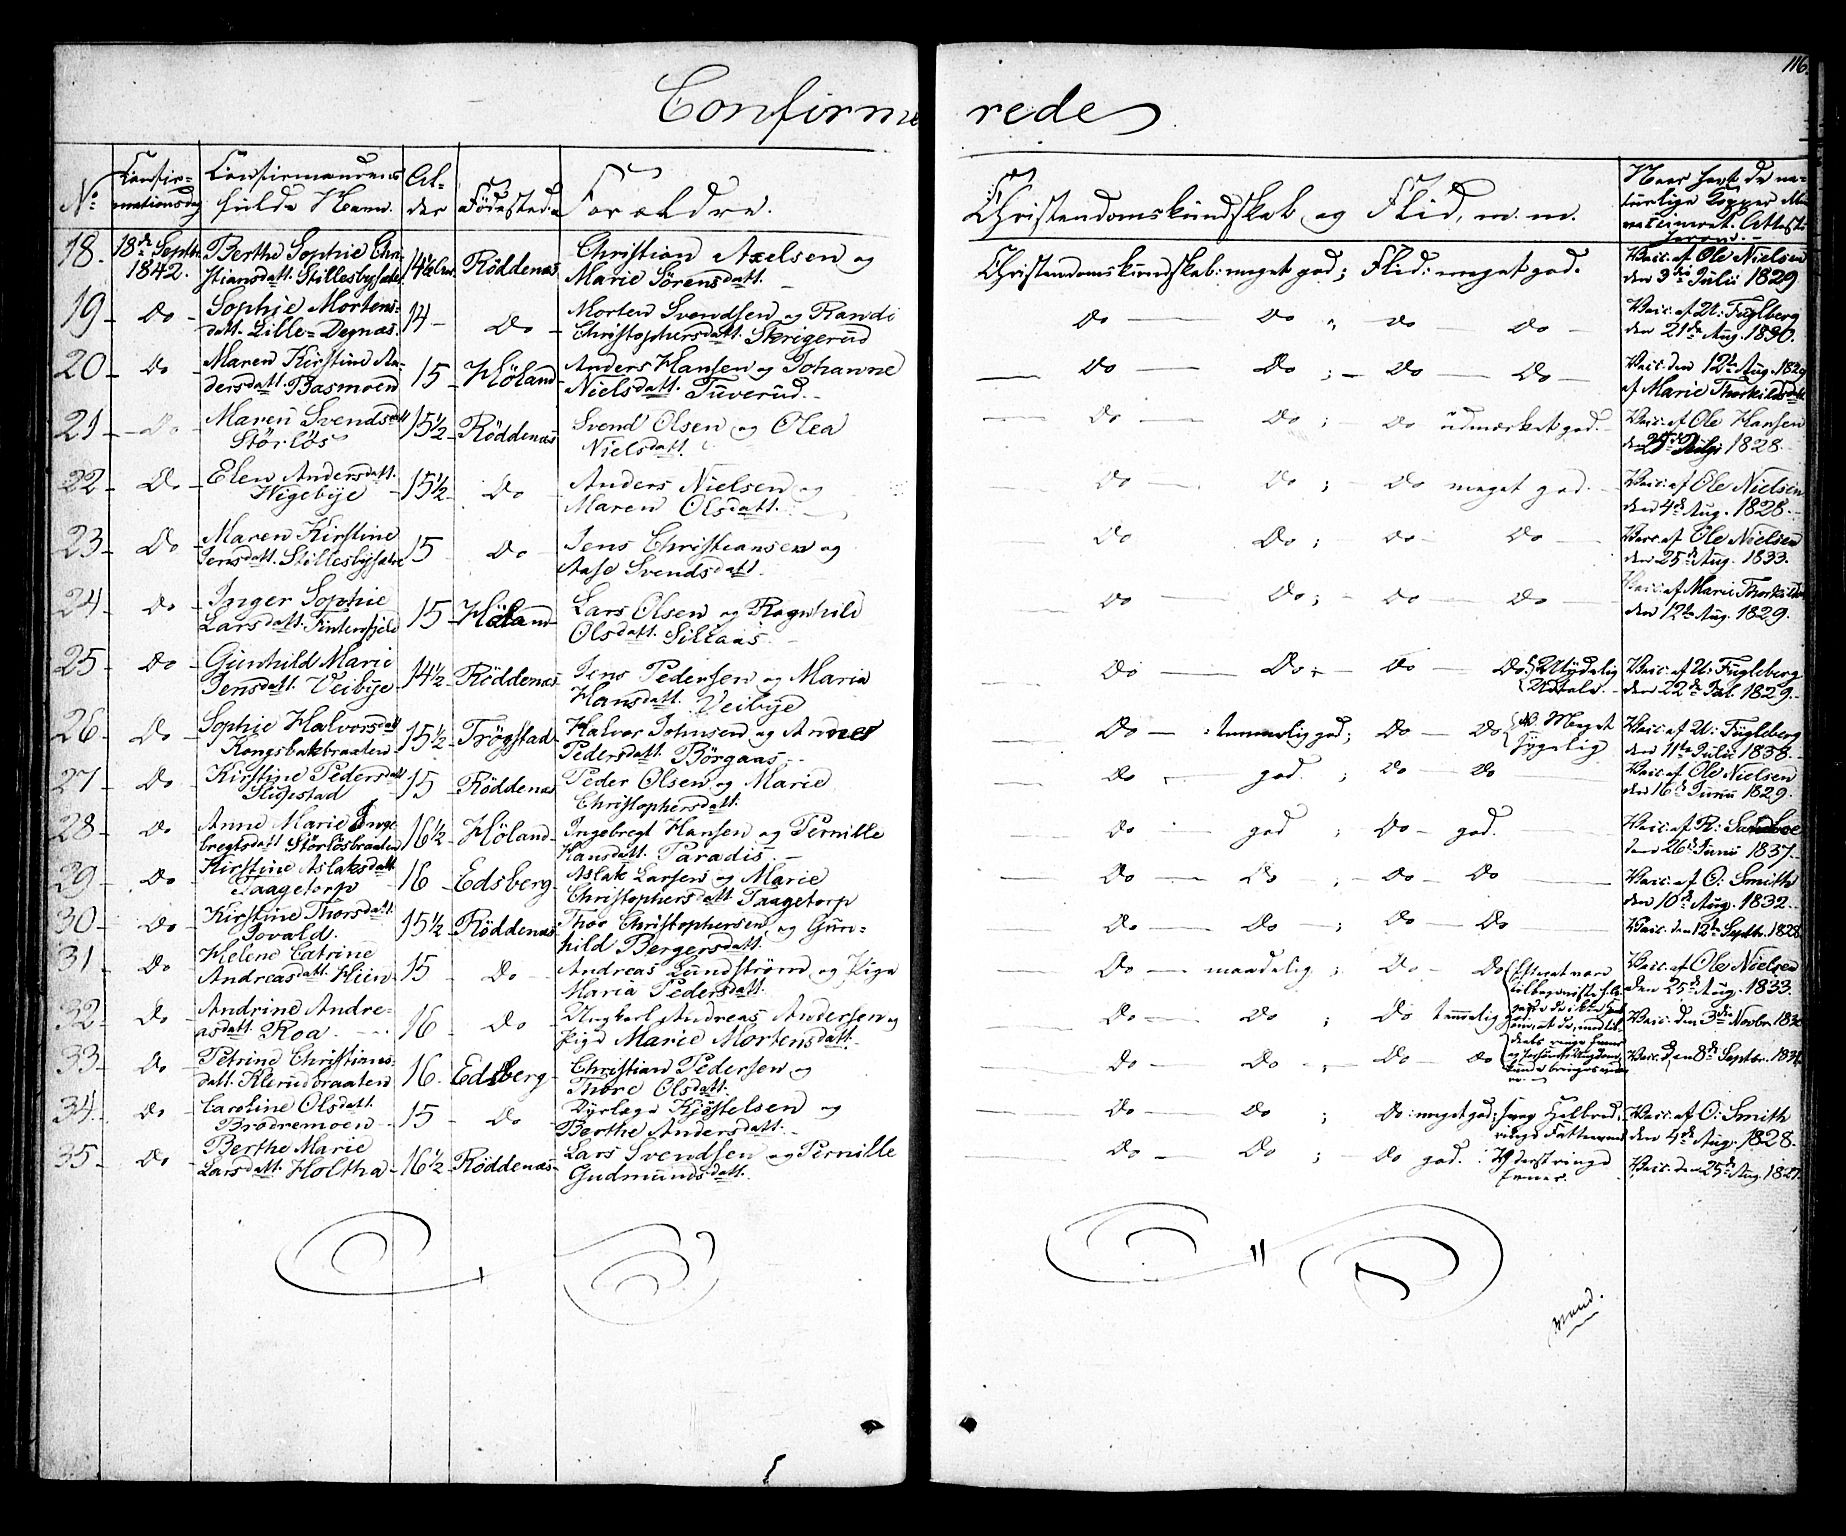 116.
Confirmerede
No Confirmationsdag Confirmandens fulde Navn. Alder Födested. Forældre. Christendomskundskab og Flid, m. m. Naar havt de naturlige Kopper
18. 18de Septbr 1842. Berthe Sophie Christiansdatt. Stillesbysæte 14½ Röddenæs Christian Axelsen og Marie Sörensdatt. Christendomskundskab: meget god; Flid: meget god. Vacc. af Ole Nielsen den 3die Julii 1829
19 - do - Sophie Mortensdatt. Lille-Degnæs. 14 - do - Morten Svendsen og Randi Christophersdatt. Skrigerud do do " do do Vacc. af U: Fuglberg den 21de Aug. 1830.
20 - do - Maren Kirstine Andersdatt. Basmoen 15 Höland Anders Hansen og Johanne Nielsdatt. Tuverud. do do ; do do Vacc. den 12te Aug. 1829 af Marie Thorkildsdatt
21 - do - Maren Svendsdatt Störlös 15½ Röddenæs Svend Olsen og Olea Nielsdatt. do do ; do udmærket god. Vacc. af Ole Hansen den 1828.
22 - do - Elen Andersdatt. Vigebye 15½ do Anders Nielsen og Maren Olsdatt. do do ; do meget god. Vacc. af Ole Nielsen den 4de Aug. 1828.
23 - do - Maren Kirstine Jensdatt. Stillesbysæte 15 do Jens Christiansen og Aase Svendsdatt. do do ; do do Vacc. af Ole Nielsen den 25de Aug. 1833.
24 - do - Inger Sophie Larsdatt. 15 Höland Lars Olsen og Ragnhild Olsdatt. Sillaas do do ; do do Vacc. af Marie den 12te Aug. 1829.
25 - do - Gunhild Marie Jensdatt. Veibye 14½ Röddenæs Jens Pedersen og Maria Hansdatt. Veibye do do ; do do Utydelig Udtale. Vacc. af U: Fuglberg den 22de Jul. 1829.
26 - do Sophie Halvorsdatt Kongsbakbraaten 15½ Trögstad Halvor Johnsen og Anne Pedersdatt. Börgaas do temmelig god; do do Meget sygelig Vacc. af U: Fuglberg den 11te Julii 1838.
27 - do Kirstine Pedersdatt Sligestad 15 Röddenæs Peder Olsen og Marie Christophersdatt. do god ; do do Vacc. af Ole Nielsen den 16de Junii 1829.
28 - do Anne Marie Ingebregtsdatt Störlösbraaten 16½ Höland Ingebregt Hansen og Pernille Hansdatt. Paradis do god ; do god. Vacc. af R: Sundboe den 26de Junii 1837.
29 - do Kirstine Aslaksdatt Taagetorp 16 Edsberg Aslak Larsen og Marie Christophersdatt Taagetorp do do ; do do Vacc. af O: Smith den 10de Aug. 1832.
30 - do Kirstine Thorsdatt. Jovald. 15½ Röddenæs Thor Christophersen og Gunhild Bergersdatt. do do ; do do Vacc. den 12te Septbr. 1828
31 do Helene Catrine Andreasdatt. Huen 15 do Andreas Lundström og Pige Maria Pedersdatt. do maadelig ; do do Vacc. af Ole Nielsen den 25de Aug. 1833.
32 - do Andrine Andreasdatt. Roa 16 do Ungkarl Andreas Andersen og Pige Marie Mortensdatt. do do ; do temmelig Vacc. den 3die Novbr.
33 - do Petrine Christiansdatt. Klerudbraaten 16. Edsberg Christian Pedersen og Thore Olsdatt. do do ; do do Vacc. den 8de Septbr.
34 - do Caroline Olsdatt. Brödremoen 15 do Ole Kjöstelsen og Berthe Andersdatt. do do ; do: meget god; svag Helbred, ringe Fatteevne Vacc. af O: Smith den 4de Aug. 1828.
35 - do Berthe Marie Larsdatt. Holtha 16½ Röddenæs Lars Svendsen og Pernille Gudmundsdatt. do do ; do god. Yderst ringe Evner. Vacc. den 25de Aug. 1827.